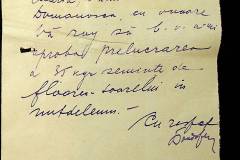 Domanovca, cu onoare
vă rog să b. v. a-mi
aproba prelucrarea
a 35 kgr seminte de
floarea-soarelui in
untdelemn.
Cu respect